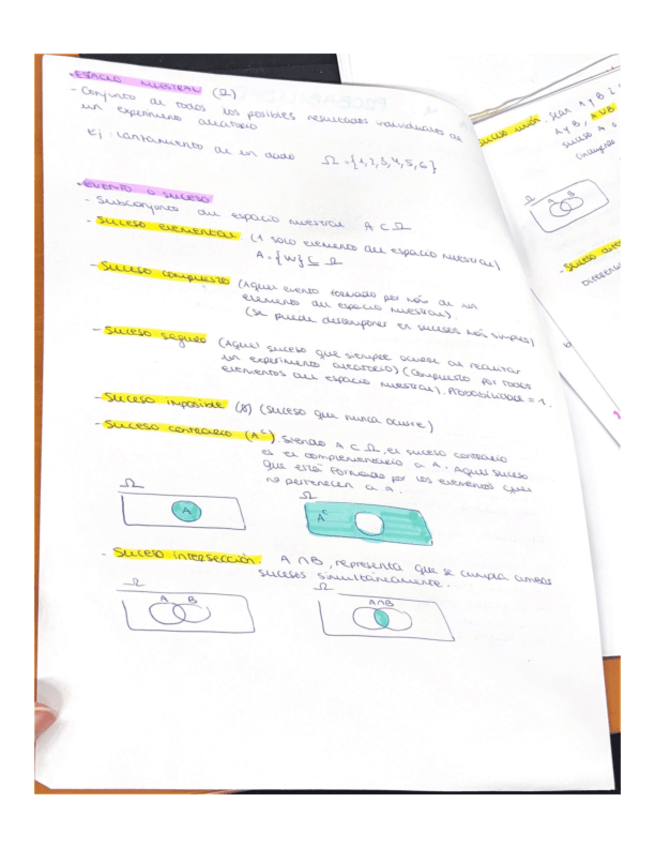 • ESPACIO MUESTRAL (Ω)
- Conjunto de todos los posibles resultados individuales de
un experimento aleatorio
Ej: lanzamiento de un dado Ω = {1,2,3,4,5,6}
• EVENTO O SUCESO
- Subconjunto del espacio muestral A ⊂ Ω
- Suceso elemental (1 solo elemento del espacio muestral)
A = {w} ⊆ Ω
- Suceso compuesto (Aquel evento formado por más de un
elemento del espacio muestral).
(Se puede descomponer en sucesos más simples)
- Suceso seguro (Aquel suceso que siempre ocurre al realizar
un experimento aleatorio) (Compuesto por todos
elementos del espacio muestral). Probabilidad = 1.
- Suceso imposible (Ø) (suceso que nunca ocurre)
- Suceso contrario (Aᶜ). Siendo A ⊂ Ω, el suceso contrario
es el complementario a A. Aquel suceso
que está formado por los elementos que
no pertenecen a A.
Ω Ω
A Aᶜ
- Suceso intersección. A ∩ B, representa que se cumpla ambos
sucesos simultáneamente.
Ω Ω
A B A∩B
Suceso unión. Sean A y B
A y B, A∪B
suceso A
Ω
A B